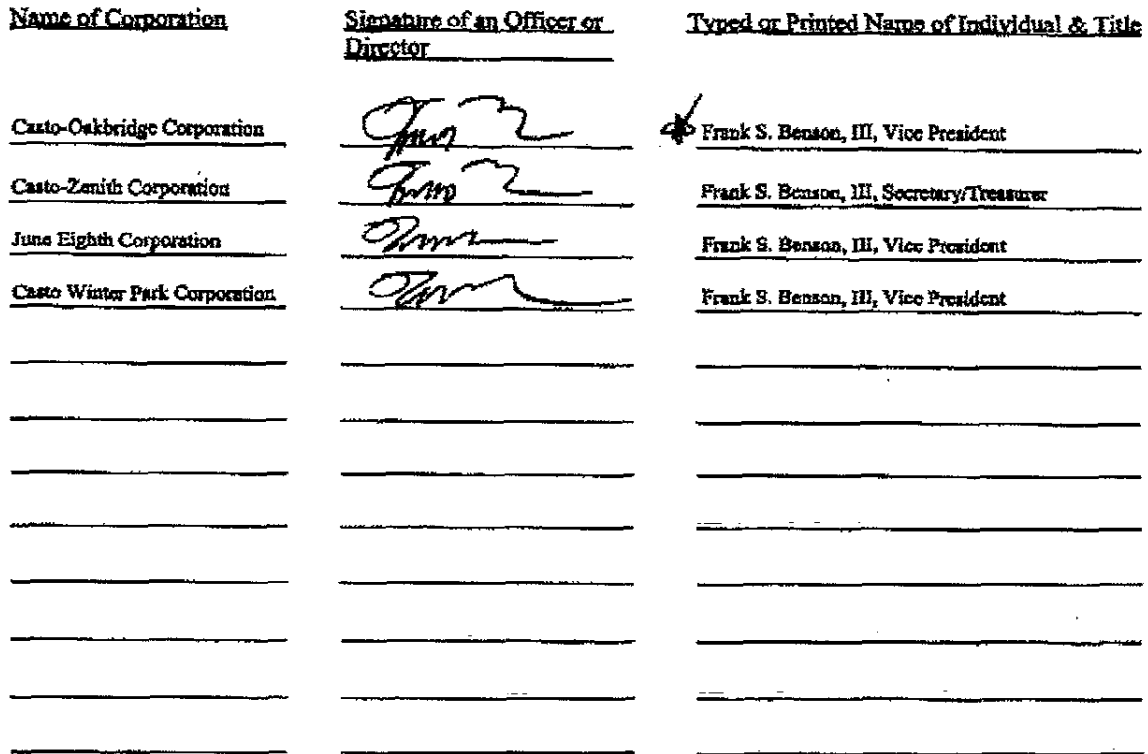 Name of Corporation Signature of an Officer or Director Typed or Printed Name of Individual & Title
Casto-Oakbridge Corporation Frank S. Benson, III, Vice President
Casto-Zenith Corporation Frank S. Benson, III, Secretary/Treasurer
June Eighth Corporation Frank S. Benson, III, Vice President
Casto Winter Park Corporation Frank S. Benson, III, Vice President